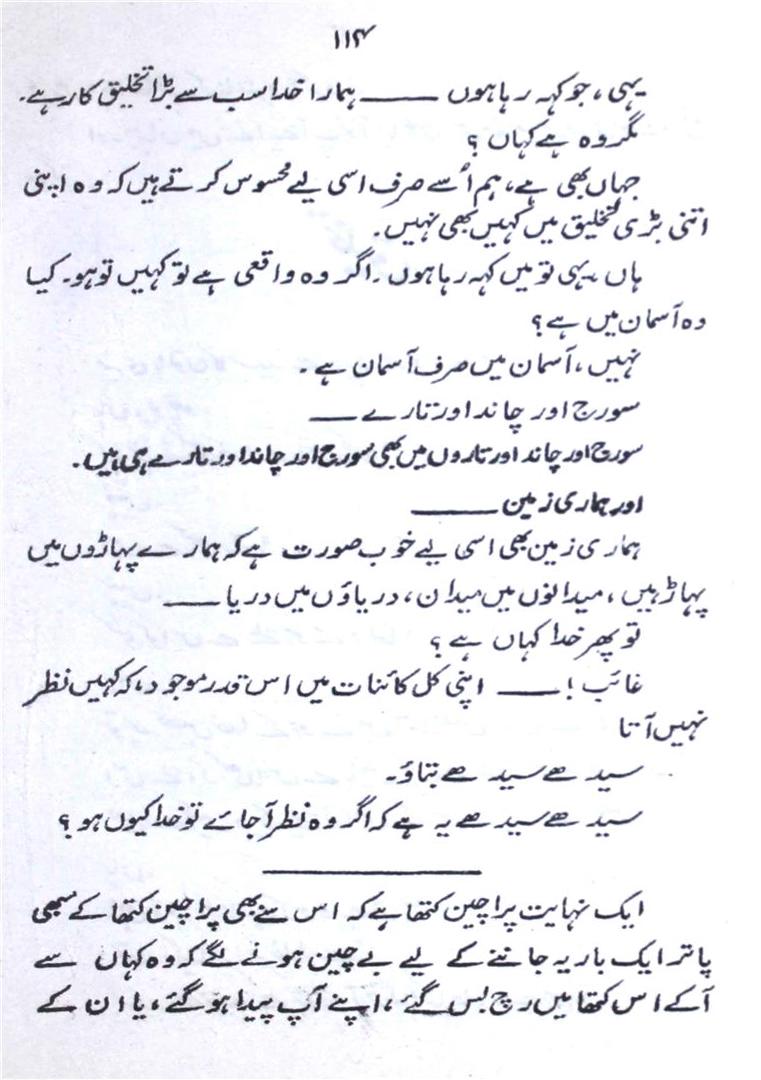 ۱۱۴
یہی، جو کہہ رہا ہوں ــــــ ہمارا خدا سب سے بڑا تخلیق کار ہے۔
مگر وہ ہے کہاں؟
جہاں بھی ہے، ہم اُسے صرف اسی لیے محسوس کرتے ہیں کہ وہ اپنی
اتنی بڑی تخلیق میں کہیں بھی نہیں۔
ہاں یہی تو میں کہہ رہا ہوں۔ اگر وہ واقعی ہے تو کہیں تو ہو۔ کیا
وہ آسمان میں ہے؟
نہیں، آسمان میں صرف آسمان ہے۔
سورج اور چاند اور تارے ــــــ
سورج اور چاند اور تاروں میں بھی سورج اور چاند اور تارے ہی ہیں۔
اور ہماری زمین ــــــ
ہماری زمین بھی اسی لیے خوب صورت ہے کہ ہمارے پہاڑوں میں
پہاڑ ہیں، میدانوں میں میدان، دریاؤں میں دریا ــــــ
تو پھر خدا کہاں ہے؟
غائب! ــــــ اپنی کل کائنات میں اس قدر موجود، کہ کہیں نظر
نہیں آتا
سیدھے سیدھے بتاؤ۔
سیدھے سیدھے یہ ہے کہ اگر وہ نظر آجائے تو خدا کیوں ہو؟
ایک نہایت پراچین کتھا ہے کہ اس سے بھی پراچین کتھا کے سبھی
پاتر ایک بار یہ جاننے کے لیے بے چین ہونے لگے کہ وہ کہاں سے
آکے اس کتھا میں رچ بس گئے، اپنے آپ پیدا ہو گئے، یا ان کے